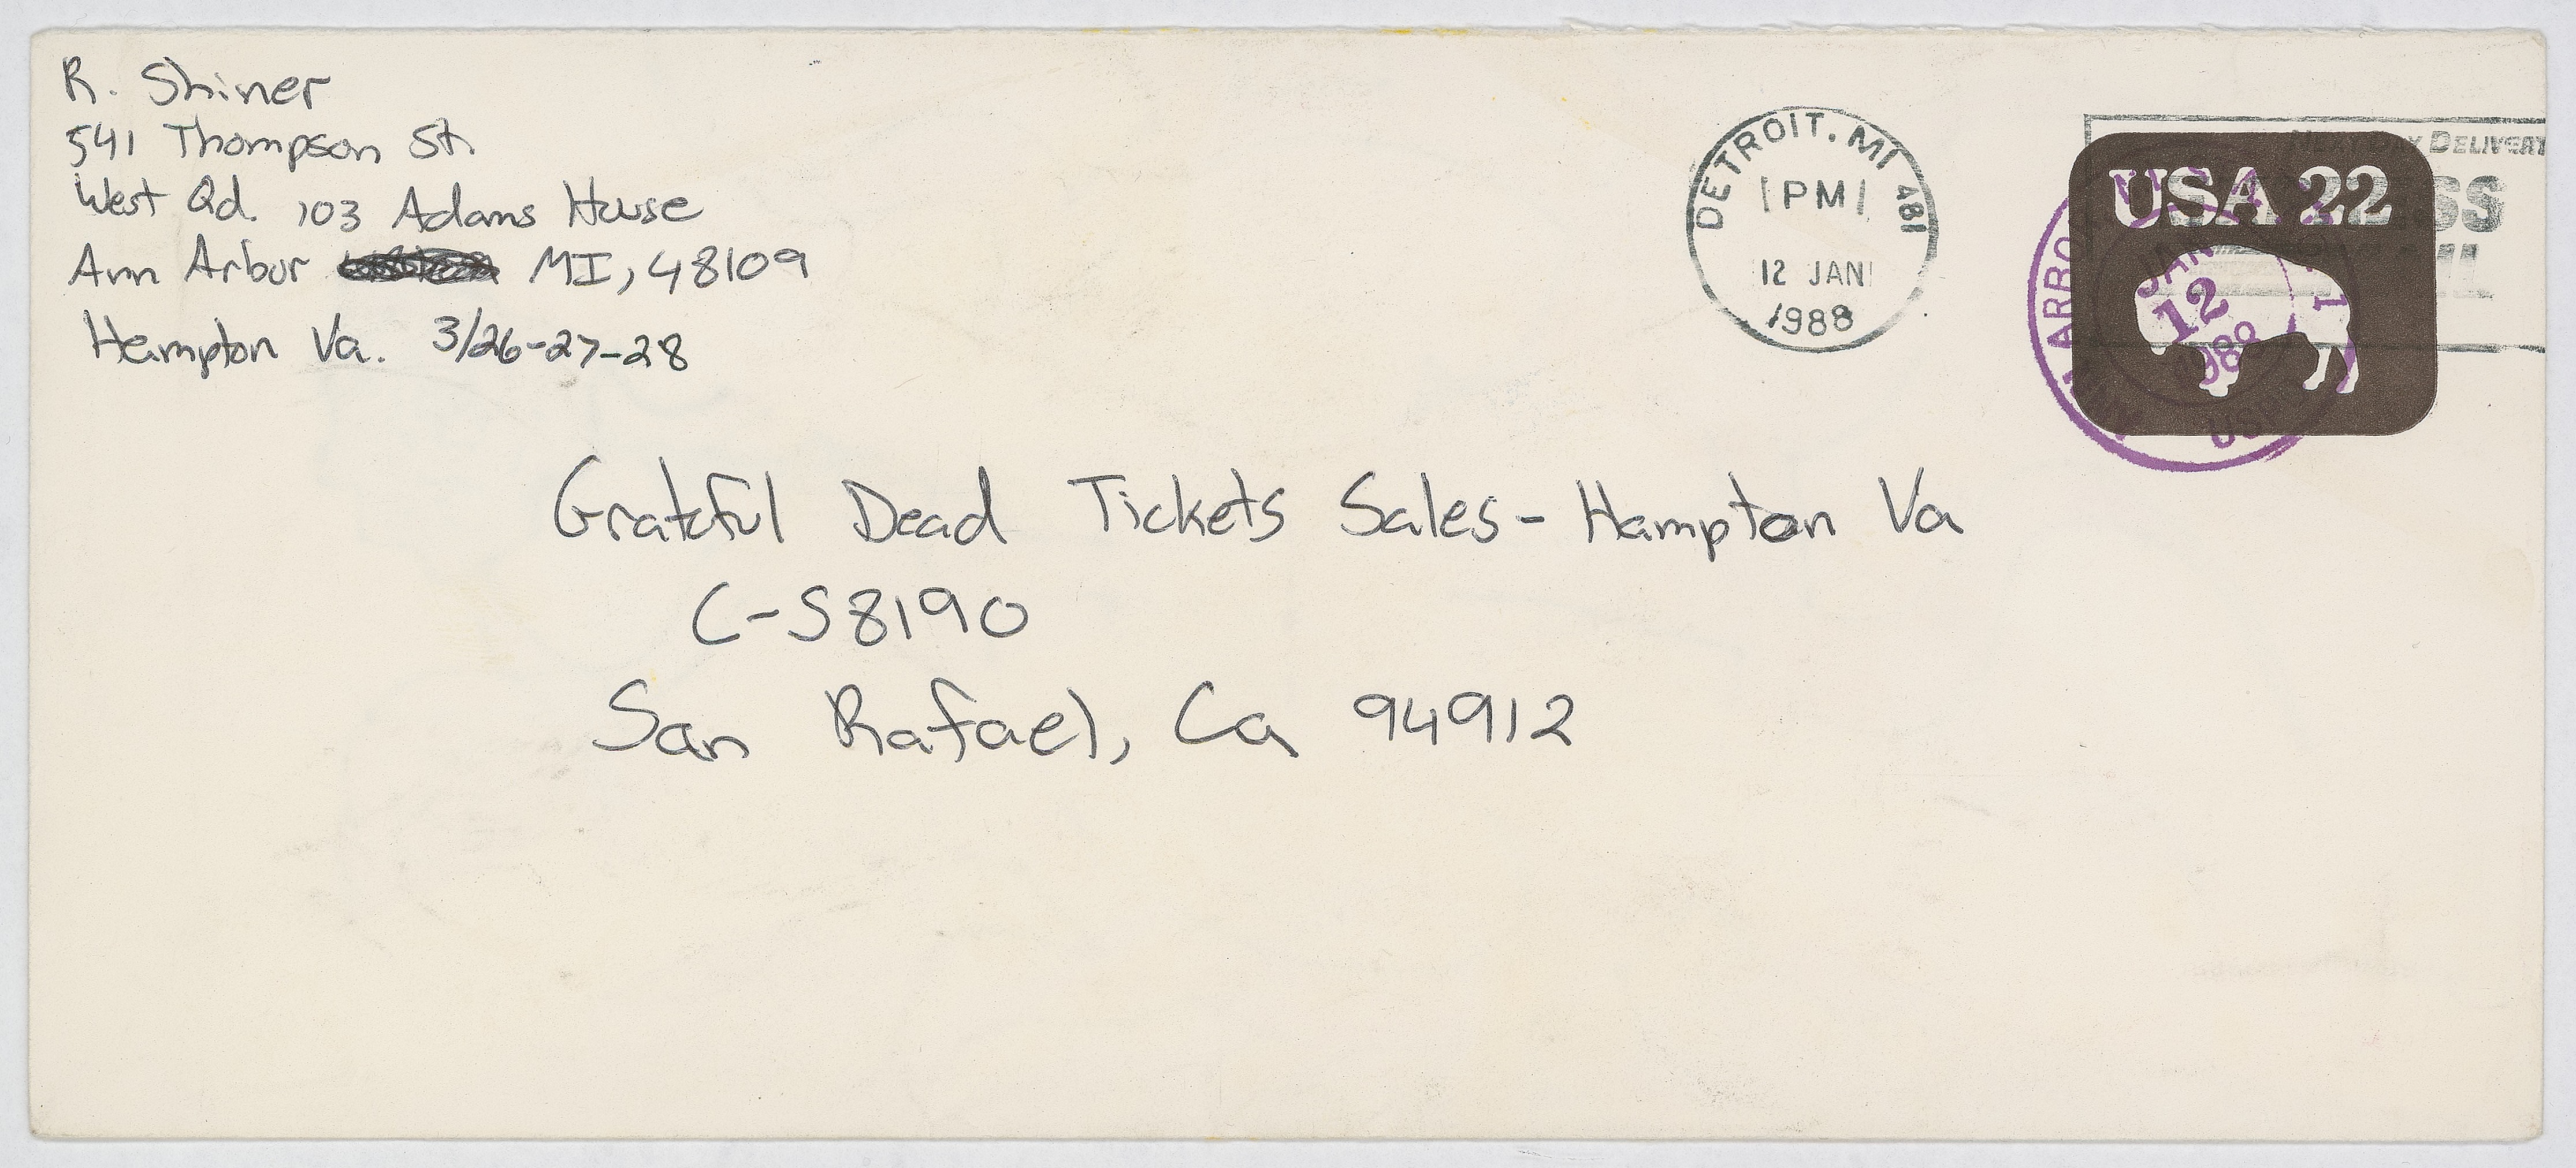 R. Shiner
541 Thompson St.
West Qd. 103 Adams House
Ann Arbor MI, 48109
Hampton Va. 3/26-27-28
DETROIT. MI 481
PM
12 JAN
1988
NEXT DAY DELIVERY
USA 22
ANN ARBOR
JAN
12
1988
USPS
Grateful Dead Tickets Sales- Hampton Va
C-S8190
San Rafael, Ca 94912